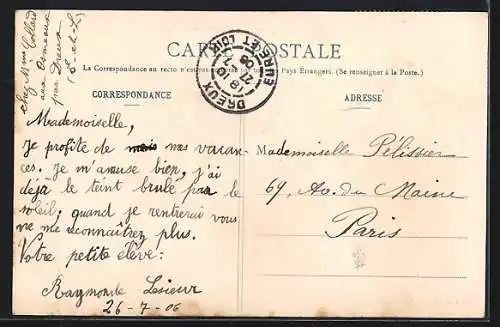 chez Mme Collard
aux Ormeaux
près Dreux
E.-et-L.
CARTE POSTALE
La Correspondance au recto n'est pas Pays Étrangers. (Se renseigner à la Poste.)
DREUX
EURE ET LOIR
CORRESPONDANCE
ADRESSE
Mademoiselle,
Je profite de mes vacan-
ces. Je m'amuse bien, j'ai
déjà le teint brulé par le
soleil, quand je rentrerai vous
ne me reconnaîtrez plus.
Votre petite élève:
Raymonde Lesieur
26-7-06
Mademoiselle Pélissier
69, Av. du Maine
Paris